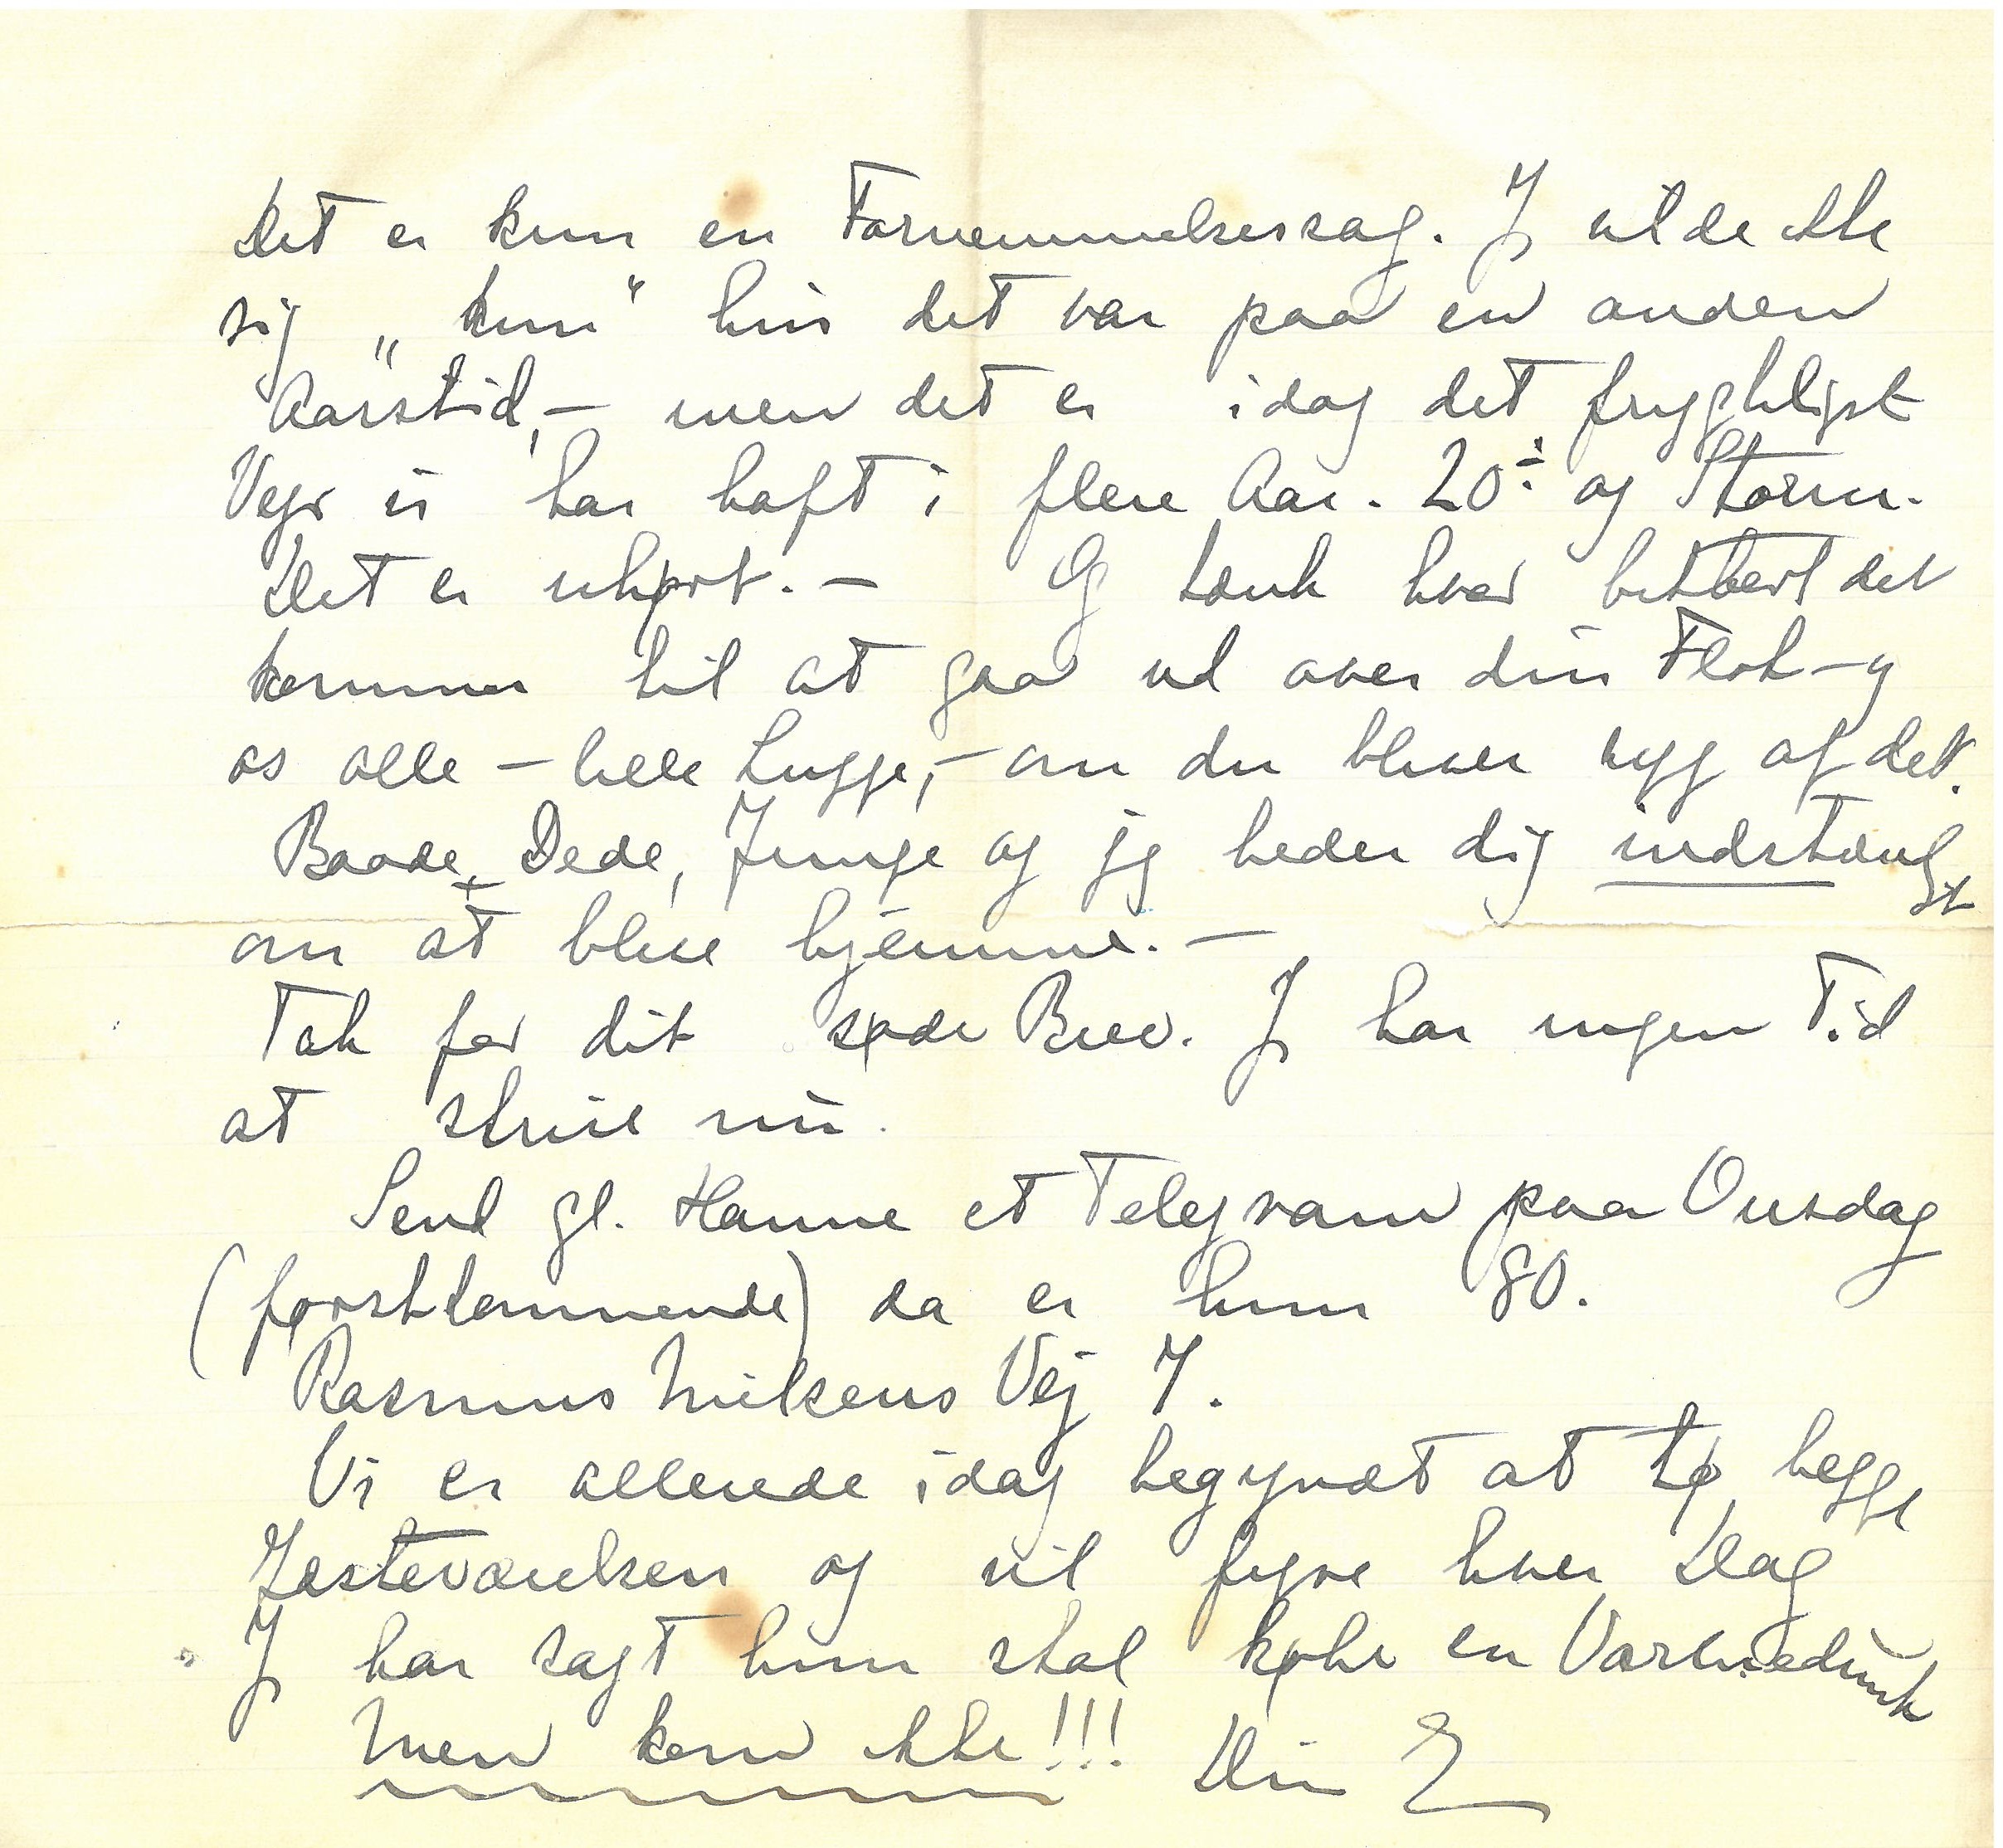 Det er kun en Fornemmelsessag. Jg vilde ikke
sig „kun“ hvis det var paa en anden
Aarstid, – men det er idag det frygteligst
Vejr vi har haft i flere Aar. 20÷ og Storm.
Det er uhørt. – Og tænk hvor bittert det
kommer til at gaa ud over din Flok – og
os alle – lille Lugge, – om du bliver syg af det.
Baade Dede, Junge og jeg beder dig indstændigst
om at blive hjemme. –
Tak for dit søde Brev. Jg har ingen Tid
at skrive nu.
Send gl. Hanne et Telegram paa Onsdag
(førstkommende) da er hun 80.
Rasmus Nielsens Vej 7.
Vi er allerede idag begyndt at tø begge
Gæsteværelser og vil fyre hver Dag
Jg har sagt hun skal købe en Varmedunk
Men kom ikke!!! Din E